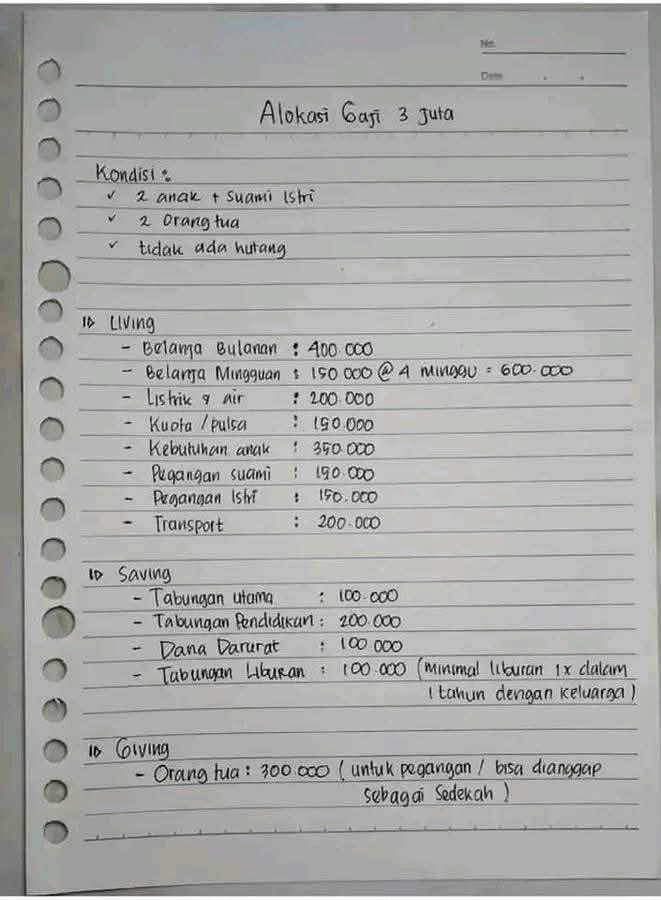 No.
Date
Alokasi Gaji 3 Juta
Kondisi :
✓ 2 anak + Suami Istri
✓ 2 Orang tua
✓ tidak ada hutang
Living
- Belanja Bulanan : 400.000
- Belanja Mingguan : 150 000 @ 4 minggu = 600.000
- Listrik & air : 200.000
- Kuota / pulsa : 150.000
- Kebutuhan anak : 350.000
- Pegangan suami : 150.000
- Pegangan Istri : 150.000
- Transport : 200.000
Saving
- Tabungan utama : 100.000
- Tabungan Pendidikan : 200.000
- Dana Darurat : 100 000
- Tabungan Liburan : 100.000 (minimal liburan 1x dalam
1 tahun dengan keluarga)
Giving
- Orang tua : 300.000 (untuk pegangan / bisa dianggap
sebagai Sedekah)